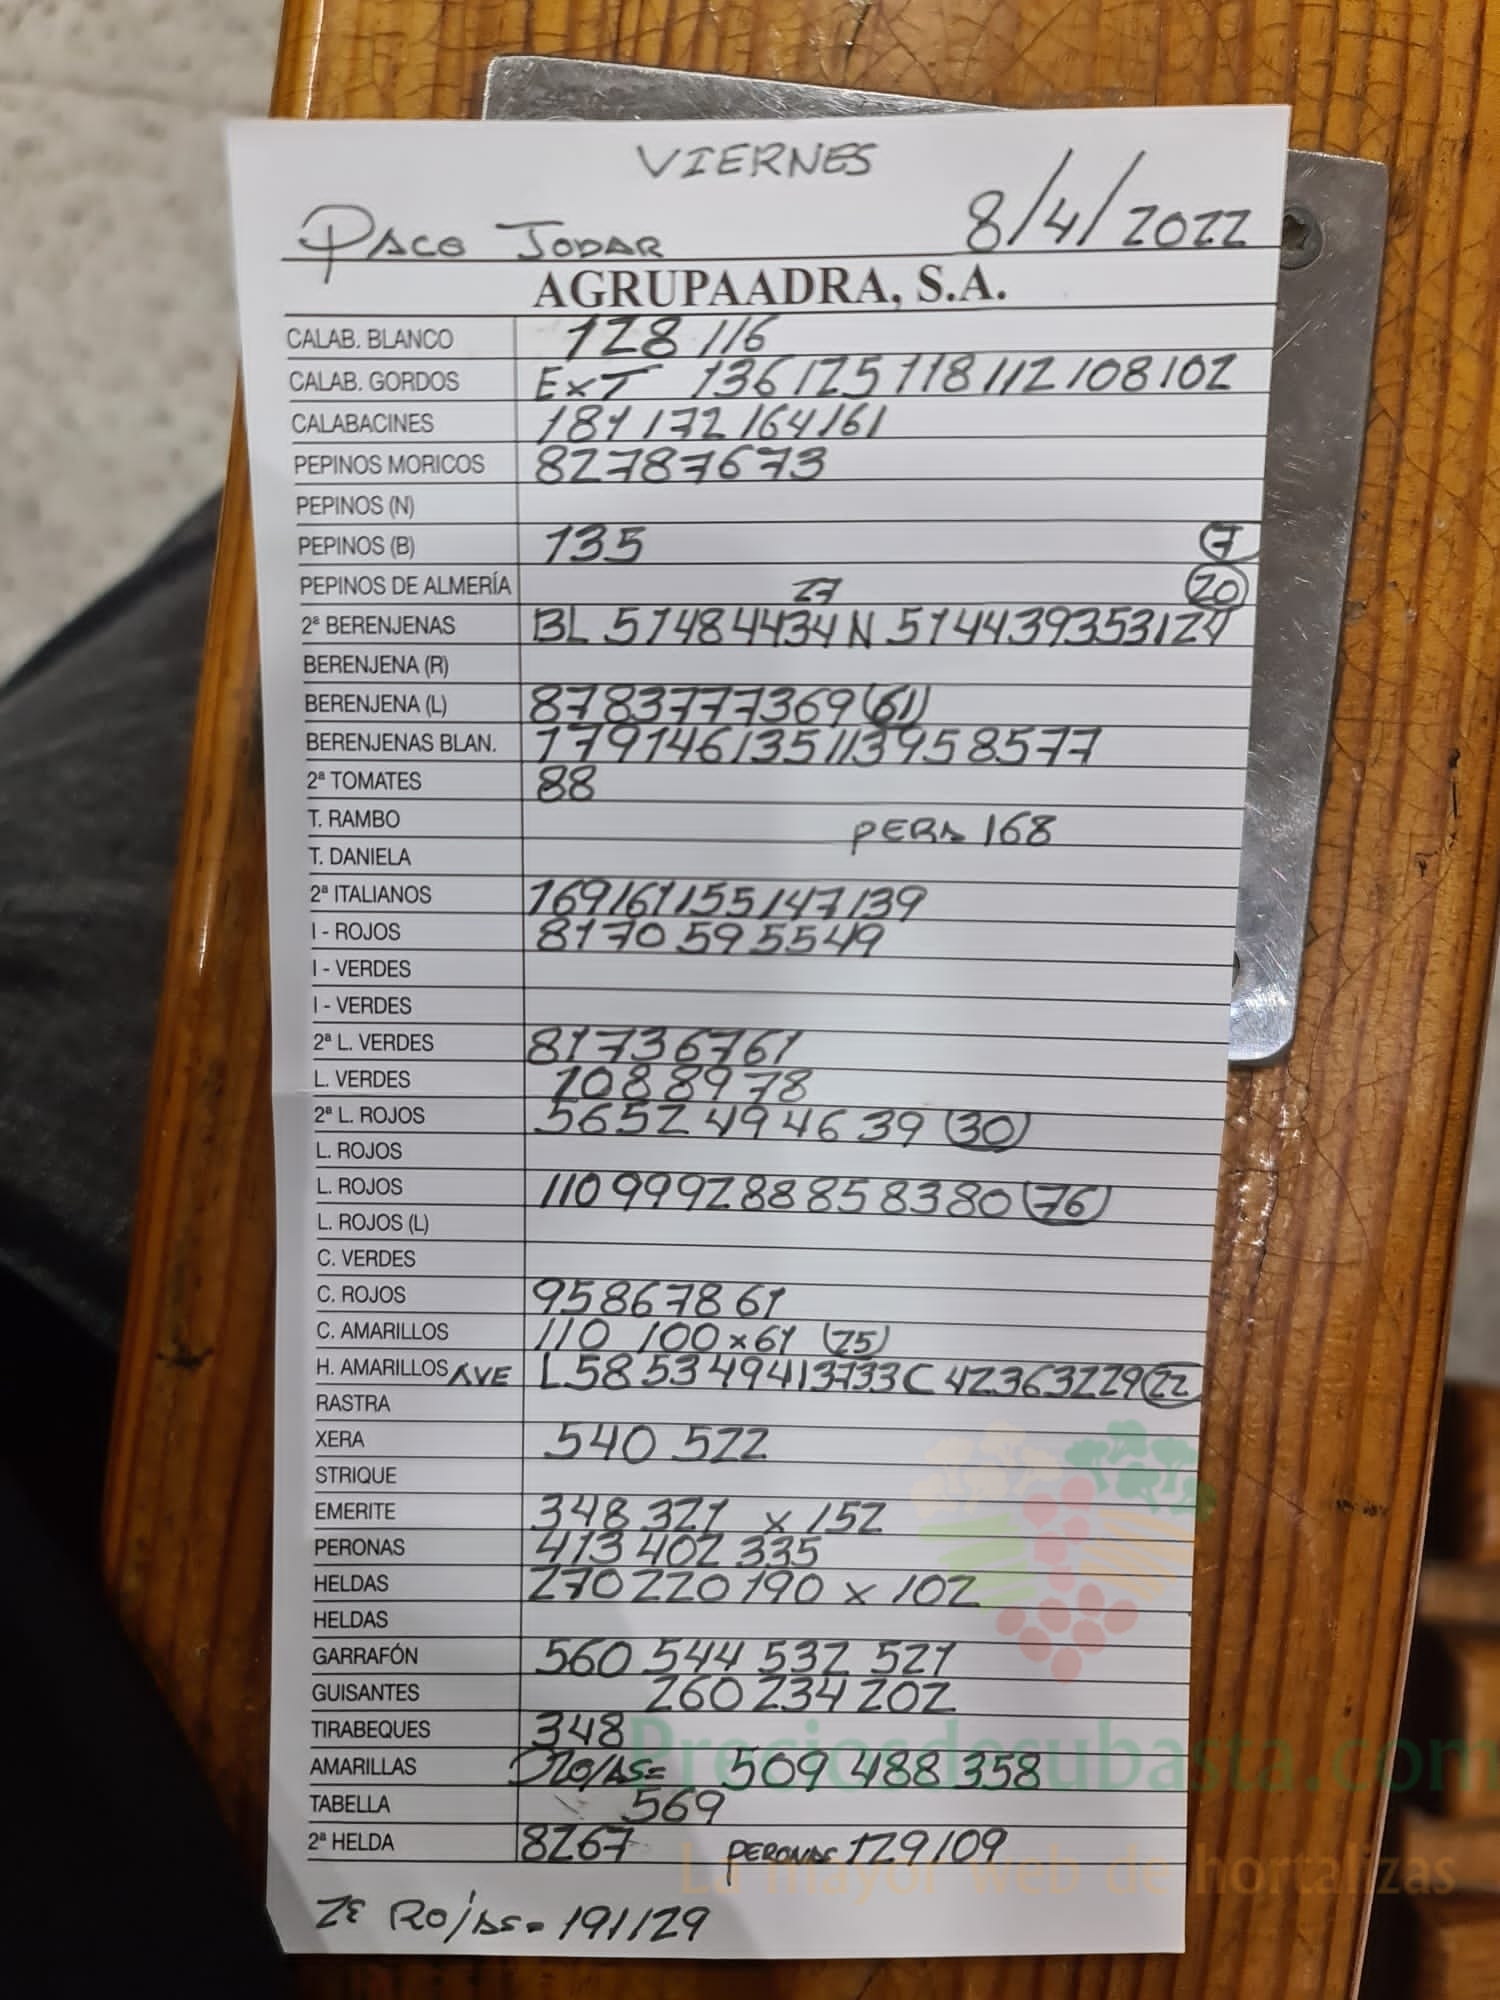 VIERNES
PACO JODAR 8/4/2022
AGRUPAADRA, S.A.
CALAB. BLANCO 128 116
CALAB. GORDOS EXT 136 125 118 112 108 102
CALABACINES 181 172 164 161
PEPINOS MORICOS 82 78 76 73
PEPINOS (N)
PEPINOS (B) 135 7
PEPINOS DE ALMERÍA 27 20
2ª BERENJENAS BL 51 48 44 34 N 51 44 39 35 31 24
BERENJENA (R)
BERENJENA (L) 87 83 77 73 69 (61)
BERENJENAS BLAN. 179 146 135 113 95 85 77
2ª TOMATES 88
T. RAMBO PERA 168
T. DANIELA
2ª ITALIANOS 169 161 155 147 139
I - ROJOS 81 70 59 55 49
I - VERDES
I - VERDES
2ª L. VERDES 81 73 67 61
L. VERDES 108 89 78
2ª L. ROJOS 56 52 49 46 39 (30)
L. ROJOS
L. ROJOS 110 99 92 88 85 83 80 (76)
L. ROJOS (L)
C. VERDES
C. ROJOS 95 86 78 61
C. AMARILLOS 110 100 x 61 (25)
H. AMARILLOS AVE L 58 53 49 41 37 33 C 42 36 32 29 22
RASTRA
XERA 540 522
STRIQUE
EMERITE 348 321 x 152
PERONAS 413 402 335
HELDAS 270 220 190 x 102
HELDAS
GARRAFÓN 560 544 532 521
GUISANTES 260 234 202
TIRABEQUES 348
AMARILLAS 509 488 358
TABELLA 569
2ª HELDA 82 67 PERONAS 129 109
ROJAS= 191 129
Preciosdesubasta.com
La mayor web de hortalizas